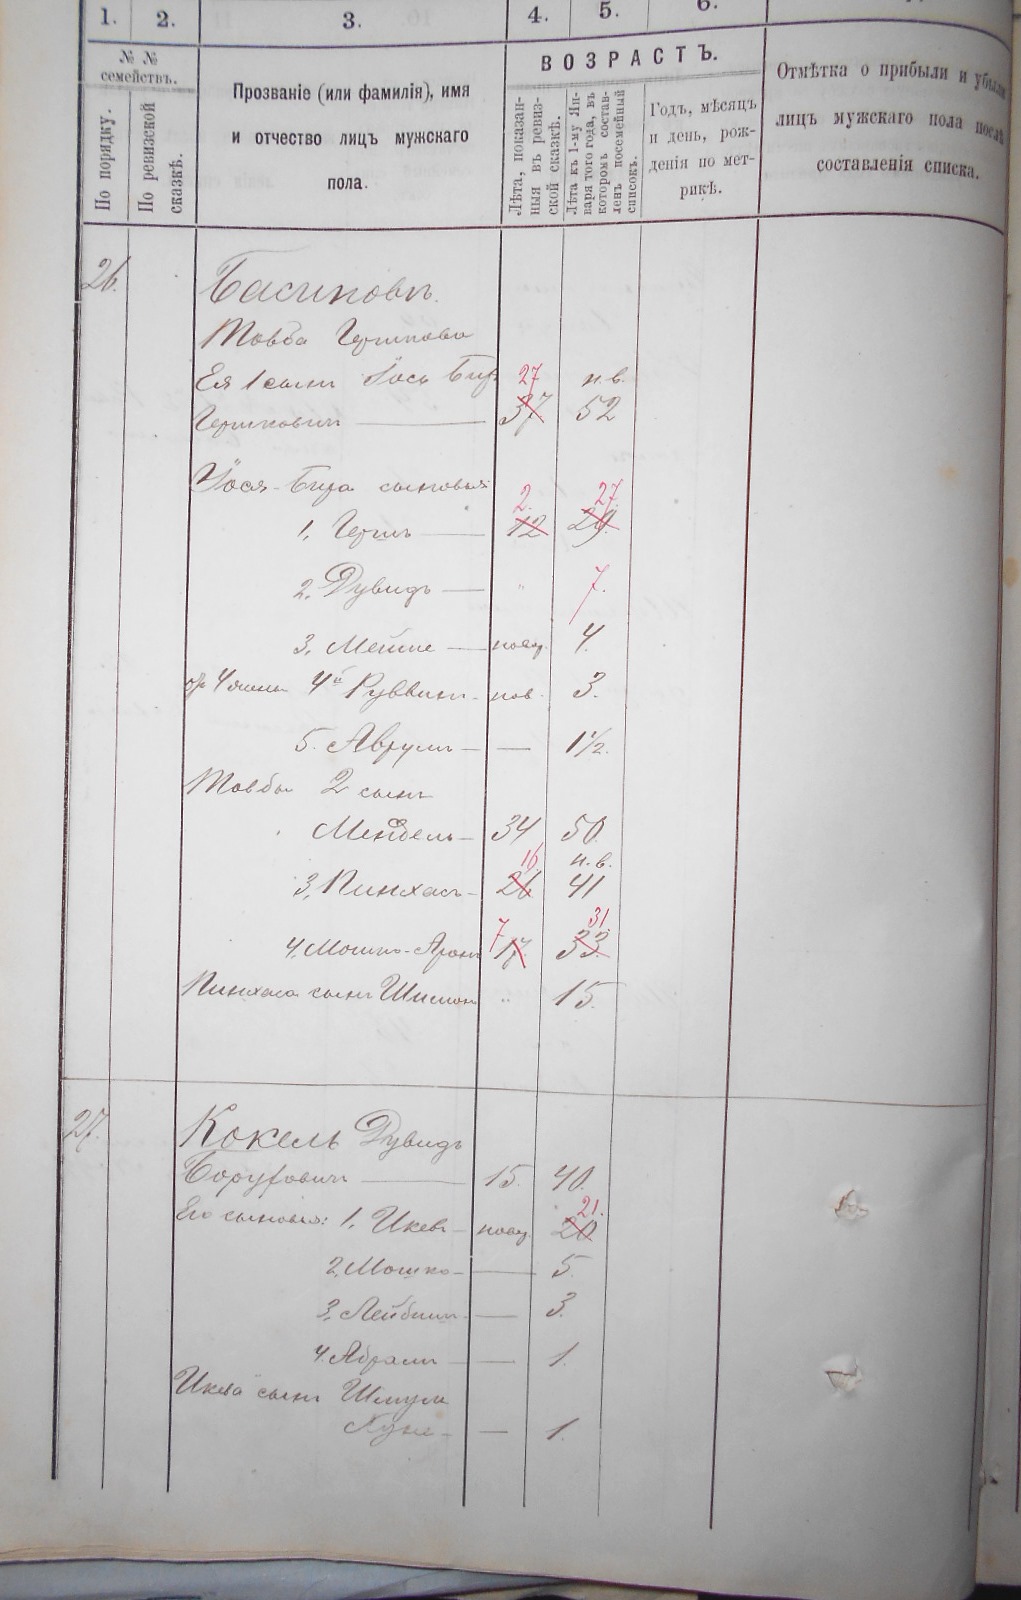 1. 2. 3. 4. 5. 6.
№ № семействъ.
По порядку.
По ревизской сказкѣ.
Прозваніе (или фамилія), имя
и отчество лицъ мужскаго
пола.
ВОЗРАСТЪ.
Лѣта, показан-
ныя въ ревиз-
ской сказкѣ.
Лѣта къ 1-му Ян-
варя того года, въ
которомъ состав-
ленъ посемейный
списокъ.
Годъ, мѣсяцъ
и день, рож-
денія по мет-
рикѣ.
Отмѣтка о прибыли и убыли
лицъ мужскаго пола послѣ
составленія списка.
26.
Товба Гершкова
Ея 1 сынъ Іось 27 н.в.
Гершковичъ 37 52
сыновья: 2. 27
1. Гершъ 12 29.
2. Дувидъ " 7.
3. 4.
4й Руввинъ нов. 3.
5. Аврумъ — 1½.
Товбы 2 сынъ
Мендель 34 50.
16 н.в.
3. Пинхасъ 26 41
7 31.
4. Мошко-Аронъ 17. 33.
Пинхаса сынъ Шимонъ " 15.
27.
Кокель Дувидъ
Боруховичъ 15. 40.
21.
Его сыновья: 1. 20
2. Мошко — 5.
3. — 3.
4. Абрамъ — 1.
сынъ Шмуль
— 1.